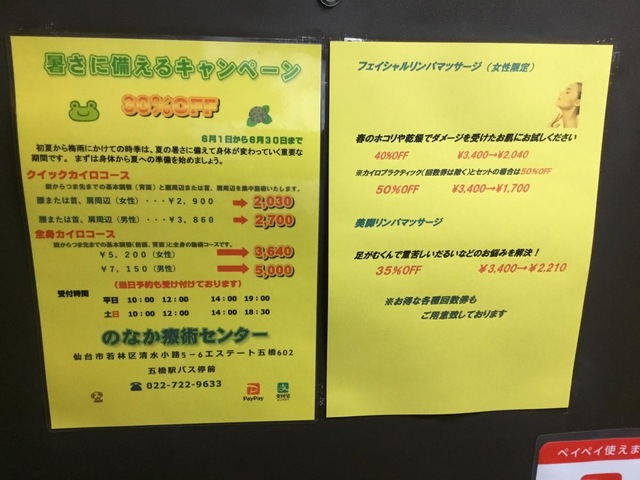 暑さに備えるキャンペーン
30%OFF
6月1日から6月30日まで
初夏から梅雨にかけての時季は、夏の暑さに備えて身体が変わっていく重要な
期間です。 まずは身体から夏への準備を始めましょう。
クイックカイロコース
頭からつま先までの基本調整(背面)と腰周辺または首、肩周辺を集中施術いたします。
腰または首、肩周辺(女性)・・・￥2,900 2,030
腰または首、肩周辺(男性)・・・￥3,860 2,700
全身カイロコース
頭からつま先までの基本調整(前面、背面)と全身の施術コースです。
￥5,200(女性) 3,640
￥7,150(男性) 5,000
(当日予約も受け付けております)
受付時間 平日 10:00 12:00 14:00 19:00
土日 10:00 12:00 14:00 18:30
のなか療術センター
仙台市若林区清水小路5-6エステート五橋602
五橋駅バス停前
☎022-722-9633
PayPay
支付宝
フェイシャルリンパマッサージ(女性限定)
春のホコリや乾燥でダメージを受けたお肌にお試しください
40%OFF ￥3,400→￥2,040
※カイロプラクティック(回数券は除く)とセットの場合は50%OFF
50%OFF ￥3,400→￥1,700
美脚リンパマッサージ
足がむくんで重苦しいだるいなどのお悩みを解決!
35%OFF ￥3,400→￥2,210
※お得な各種回数券も
ご用意致しております
ペイペイ使えま